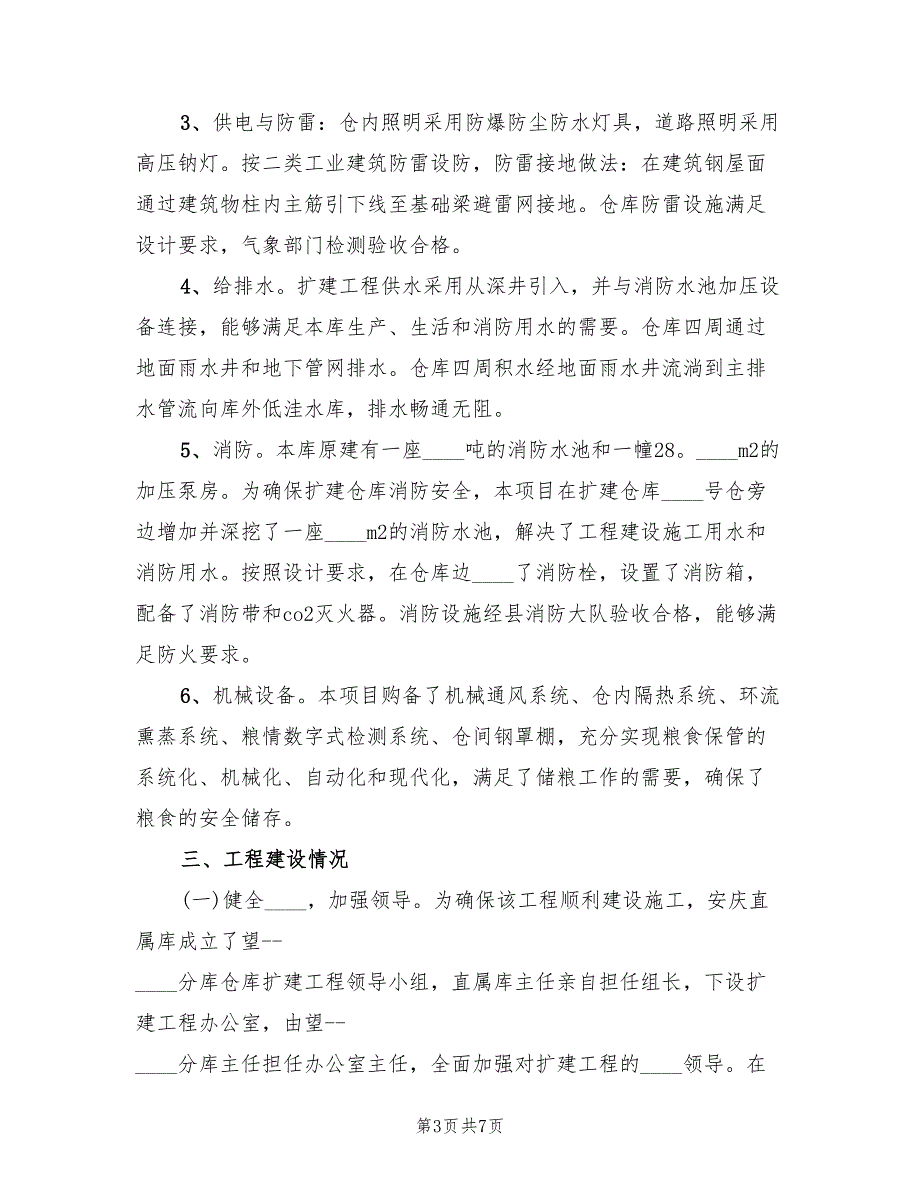 3、供电与防雷：仓内照明采用防爆防尘防水灯具，道路照明采用
高压钠灯。按二类工业建筑防雷设防，防雷接地做法：在建筑钢屋面
通过建筑物柱内主筋引下线至基础梁避雷网接地。仓库防雷设施满足
设计要求，气象部门检测验收合格。
4、给排水。扩建工程供水采用从深井引入，并与消防水池加压设
备连接，能够满足本库生产、生活和消防用水的需要。仓库四周通过
地面雨水井和地下管网排水。仓库四周积水经地面雨水井流淌到主排
水管流向库外低洼水库，排水畅通无阻。
5、消防。本库原建有一座____吨的消防水池和一幢28。____m2的
加压泵房。为确保扩建仓库消防安全，本项目在扩建仓库____号仓旁
边增加并深挖了一座____m2的消防水池，解决了工程建设施工用水和
消防用水。按照设计要求，在仓库边____了消防栓，设置了消防箱，
配备了消防带和co2灭火器。消防设施经县消防大队验收合格，能够满
足防火要求。
6、机械设备。本项目购备了机械通风系统、仓内隔热系统、环流
熏蒸系统、粮情数字式检测系统、仓间钢罩棚，充分实现粮食保管的
系统化、机械化、自动化和现代化，满足了储粮工作的需要，确保了
粮食的安全储存。
三、工程建设情况
(一)健全____，加强领导。为确保该工程顺利建设施工，安庆直
属库成立了望--
____分库仓库扩建工程领导小组，直属库主任亲自担任组长，下设扩
建工程办公室，由望--
____分库主任担任办公室主任，全面加强对扩建工程的____领导。在
第3页共7页